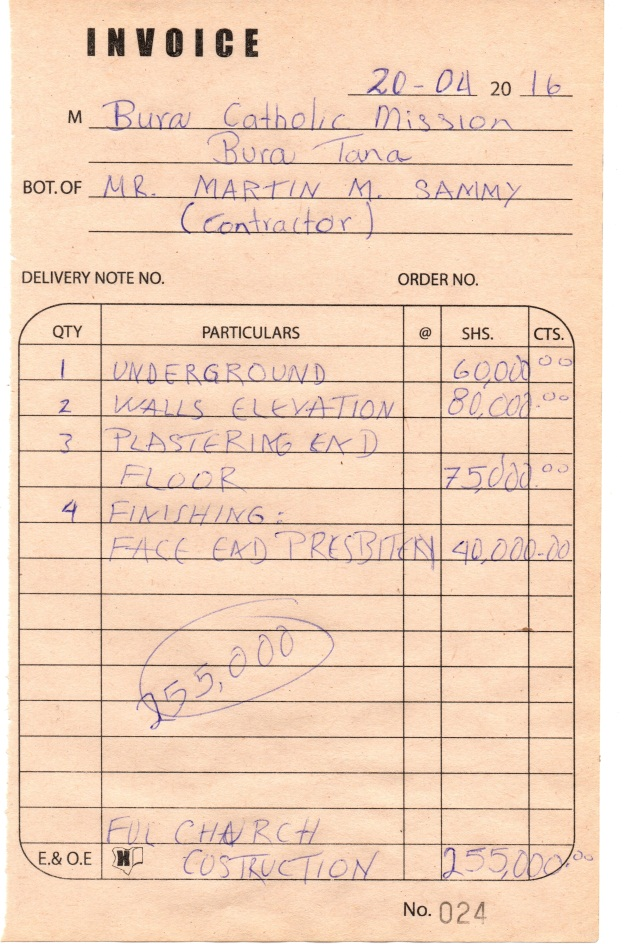 INVOICE
20-04 20 16
M Bura Catholic Mission
Bura Tana
BOT. OF MR. MARTIN M. SAMMY
(Contractor)
DELIVERY NOTE NO. ORDER NO.
QTY PARTICULARS @ SHS. CTS.
1 UNDERGROUND 60,000 00
2 WALLS ELEVATION 80,000.00
3 PLASTERING END
FLOOR 75,000.00
4 FINISHING:
FACE END PRESBITERY 40,000-00
255,000
FUL CHAURCH
E.& O.E H COSTRUCTION 255,000.00
No. 024